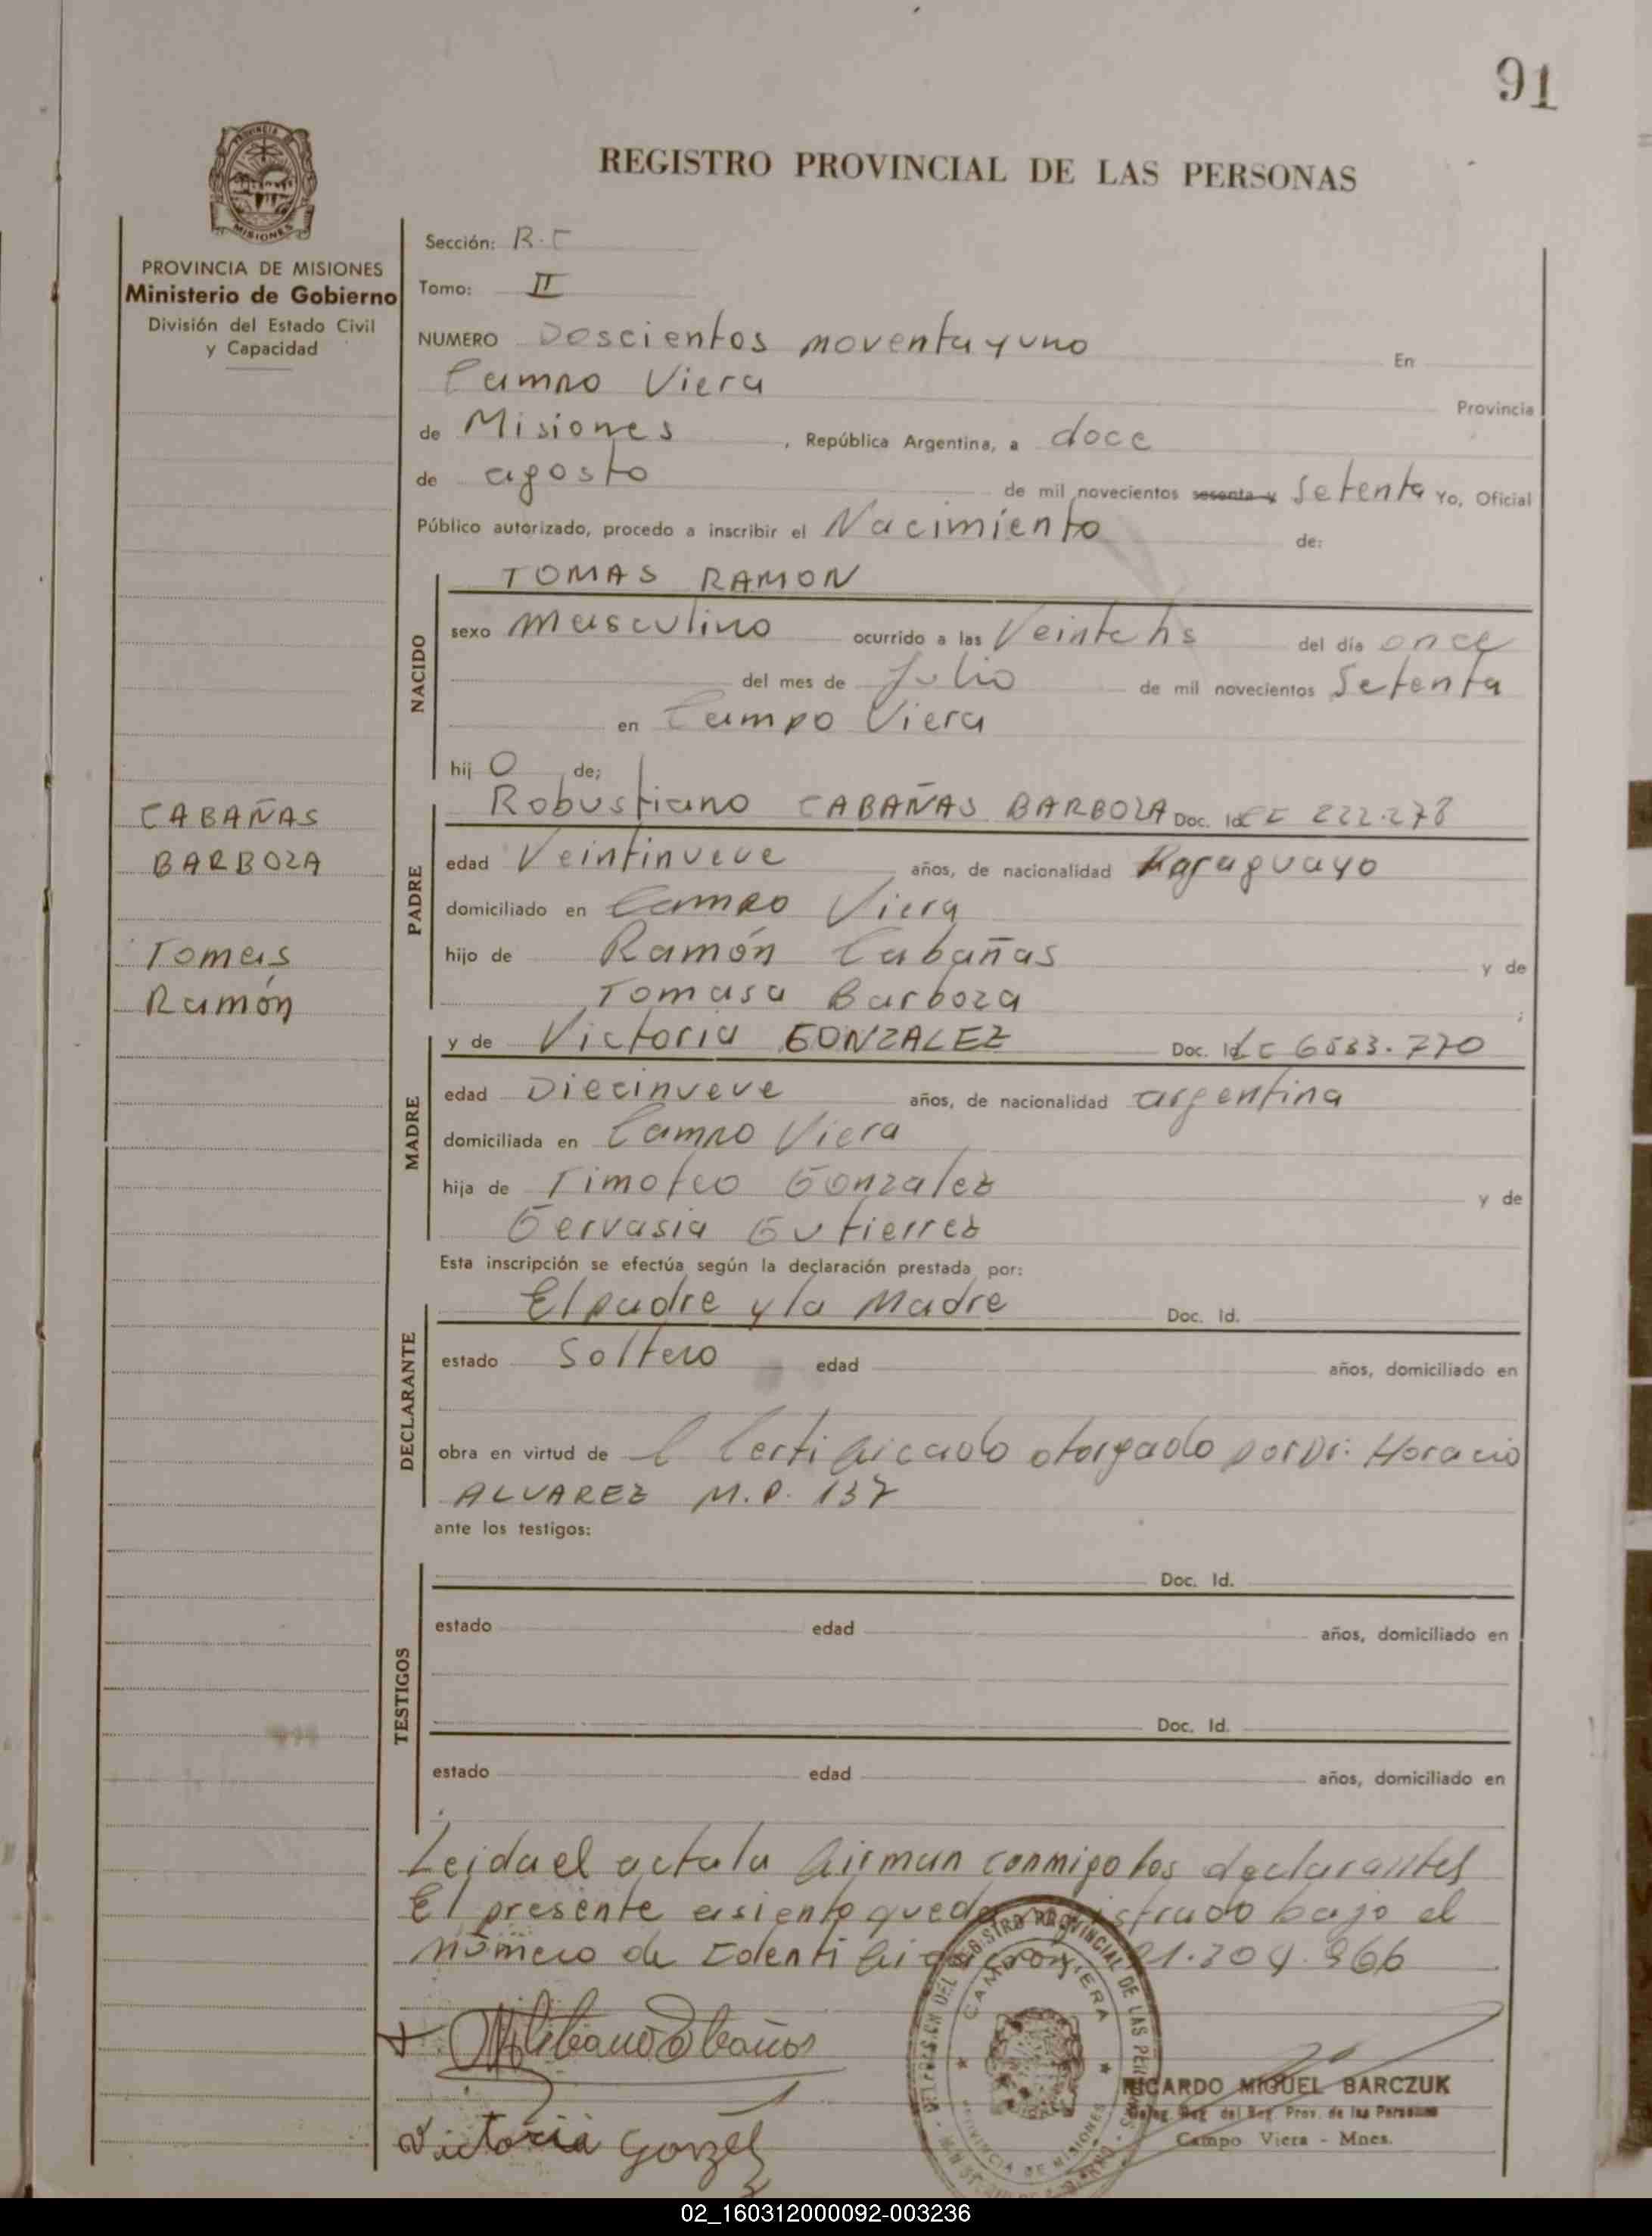 91
REGISTRO PROVINCIAL DE LAS PERSONAS
PROVINCIA DE MISIONES
Ministerio de Gobierno
División del Estado Civil
y Capacidad
Sección: R.C
Tomo: II
NUMERO Doscientos noventa y uno En
Campo Viera Provincia
de Misiones, República Argentina, a doce
de agosto de mil novecientos sesenta y Setenta Yo, Oficial
Público autorizado, procedo a inscribir el Nacimiento de:
NACIDO
TOMAS RAMON
sexo Masculino ocurrido a las Veinte hs del día once
del mes de Julio de mil novecientos Setenta
en Campo Viera
hijo de;
CABAÑAS
BARBOZA
Tomás
Ramón
PADRE
Robustiano CABAÑAS BARBOZA Doc. Id. 222.278
edad Veintinueve años, de nacionalidad Paraguayo
domiciliado en Campo Viera
hijo de Ramón Cabañas y de
Tomasa Barboza ;
MADRE
y de Victoria GONZALEZ Doc. Id. LC
edad Diecinueve años, de nacionalidad argentina
domiciliada en Campo Viera
hija de Timoteo Gonzalez y de
Gervasia Gutierrez
Esta inscripción se efectúa según la declaración prestada por:
DECLARANTE
El padre y la Madre Doc. Id.
estado Soltero edad años, domiciliado en
obra en virtud de l Certificado otorgado por Dr: Horacio
ALVAREZ M.P. 137
ante los testigos:
TESTIGOS
Doc. Id.
estado edad años, domiciliado en
Doc. Id.
estado edad años, domiciliado en
Leida el acta la firman conmigo los declarantes
El presente asiento queda bajo el
número de Identificación
Victoria Gonzel
CAMPO VIERA
PROVINCIA DE MISIONES
RICARDO MIGUEL BARCZUK
Deleg. Reg. del Reg. Prov. de las Personas
Campo Viera - Mnes.
02_160312000092-003236